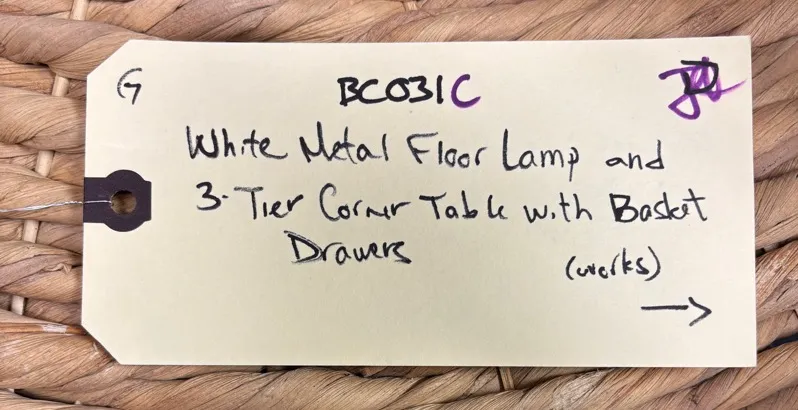 G
BC031C
White Metal Floor Lamp and
3-Tier Corner Table with Basket
Drawers
(works)
→